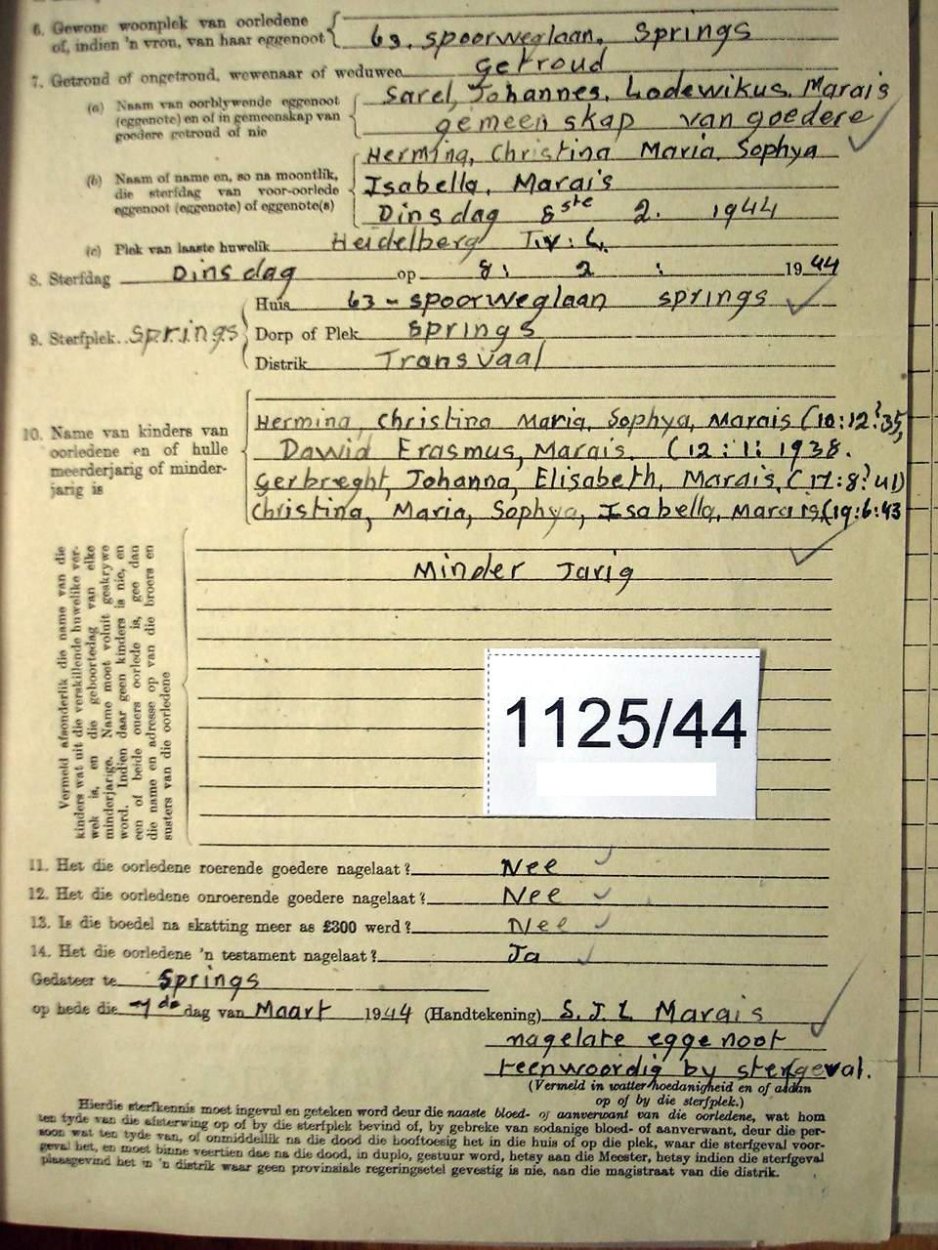 6. Gewone woonplek van oorledene
of, indien 'n vrou, van haar eggenoot 63. Spoorweglaan. Springs
7. Getroud of ongetroud, wewenaar of weduwee Getroud
(a) Naam van oorblywende eggenoot Sarel, Johannes, Lodewikus. Marais
(eggenote) en of in gemeenskap van gemeenskap van goedere
goedere getroud of nie
Hermina, Christina Maria, Sophya
(b) Naam of name en, so na moontlik, Isabella, Marais
die sterfdag van voor-oorlede
eggenoot (eggenote) of eggenote(s) Dinsdag 8ste 2. 1944
(c) Plek van laaste huwelik Heidelberg
8. Sterfdag Dinsdag op 8: 2 : 1944
Huis 63 - spoorweglaan springs
9. Sterfplek springs Dorp of Plek springs
Distrik Transvaal
Hermina, Christina Maria, Sophya, Marais (10:12:35)
10. Name van kinders van
oorledene en of hulle Dawid Erasmus, Marais. (12:1:1938.
meerderjarig of minder- Gerbreght, Johanna, Elisabeth, Marais, (17:8:41)
jarig is Christina, Maria, Sophya, Isabella, Marais (19:6:43
Minder Jarig
Vermeld afsonderlik die name van die
kinders wat uit die verskillende huwelike ver-
wek is, en die geboortedag van elke
minderjarige. Name moet voluit geskrywe
word. Indien daar geen kinders is nie, en
een of beide ouers oorlede is, gee dan
die name en adresse op van die broers en
susters van die oorledene
1125/44
11. Het die oorledene roerende goedere nagelaat? Nee
12. Het die oorledene onroerende goedere nagelaat? Nee
13. Is die boedel na skatting meer as £300 werd? Nee
14. Het die oorledene 'n testament nagelaat? Ja
Gedateer te Springs
op hede die 7de dag van Maart 1944 (Handtekening) S. J. L Marais
nagelate eggenoot
teenwoordig by sterfgeval.
(Vermeld in watter hoedanigheid en of aldan
op of by die sterfplek.)
Hierdie sterfkennis moet ingevul en geteken word deur die naaste bloed- of aanverwant van die oorledene, wat hom
ten tyde van die afsterwing op of by die sterfplek bevind of, by gebreke van sodanige bloed- of aanverwant, deur die per-
soon wat ten tyde van, of onmiddellik na die dood die hooftoesig het in die huis of op die plek, waar die sterfgeval voor-
geval het, en moet binne veertien dae na die dood, in duplo, gestuur word, hetsy aan die Meester, hetsy indien die sterfgeval
plaasgevind het in 'n distrik waar geen provinsiale regeringsetel gevestig is nie, aan die magistraat van die distrik.